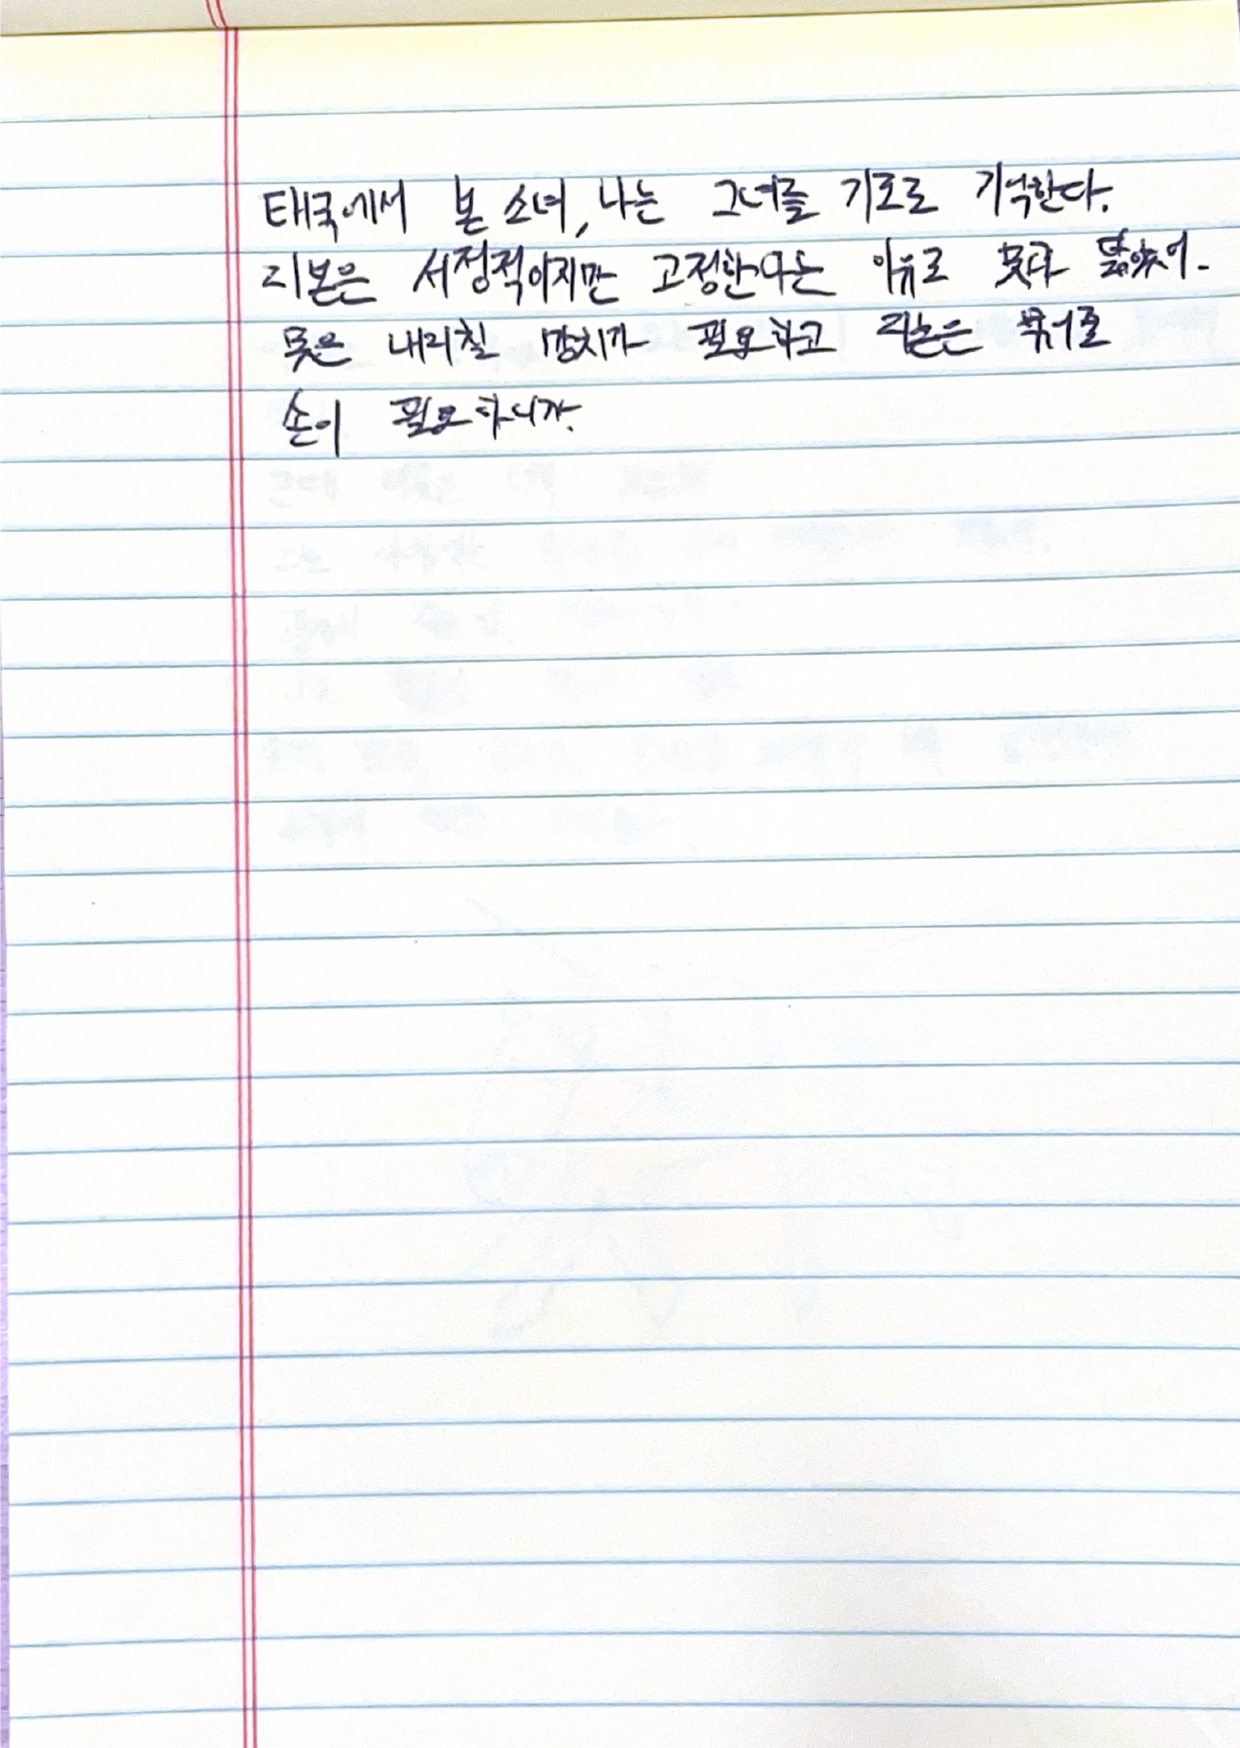 태국에서 본 소녀, 나는 그녀를 기호로 기억한다.
리본은 서정적이지만 고정한다는 이유로 못과 닮았어.
못은 내리칠 망치가 필요하고 리본은 묶어줄
손이 필요하니까.